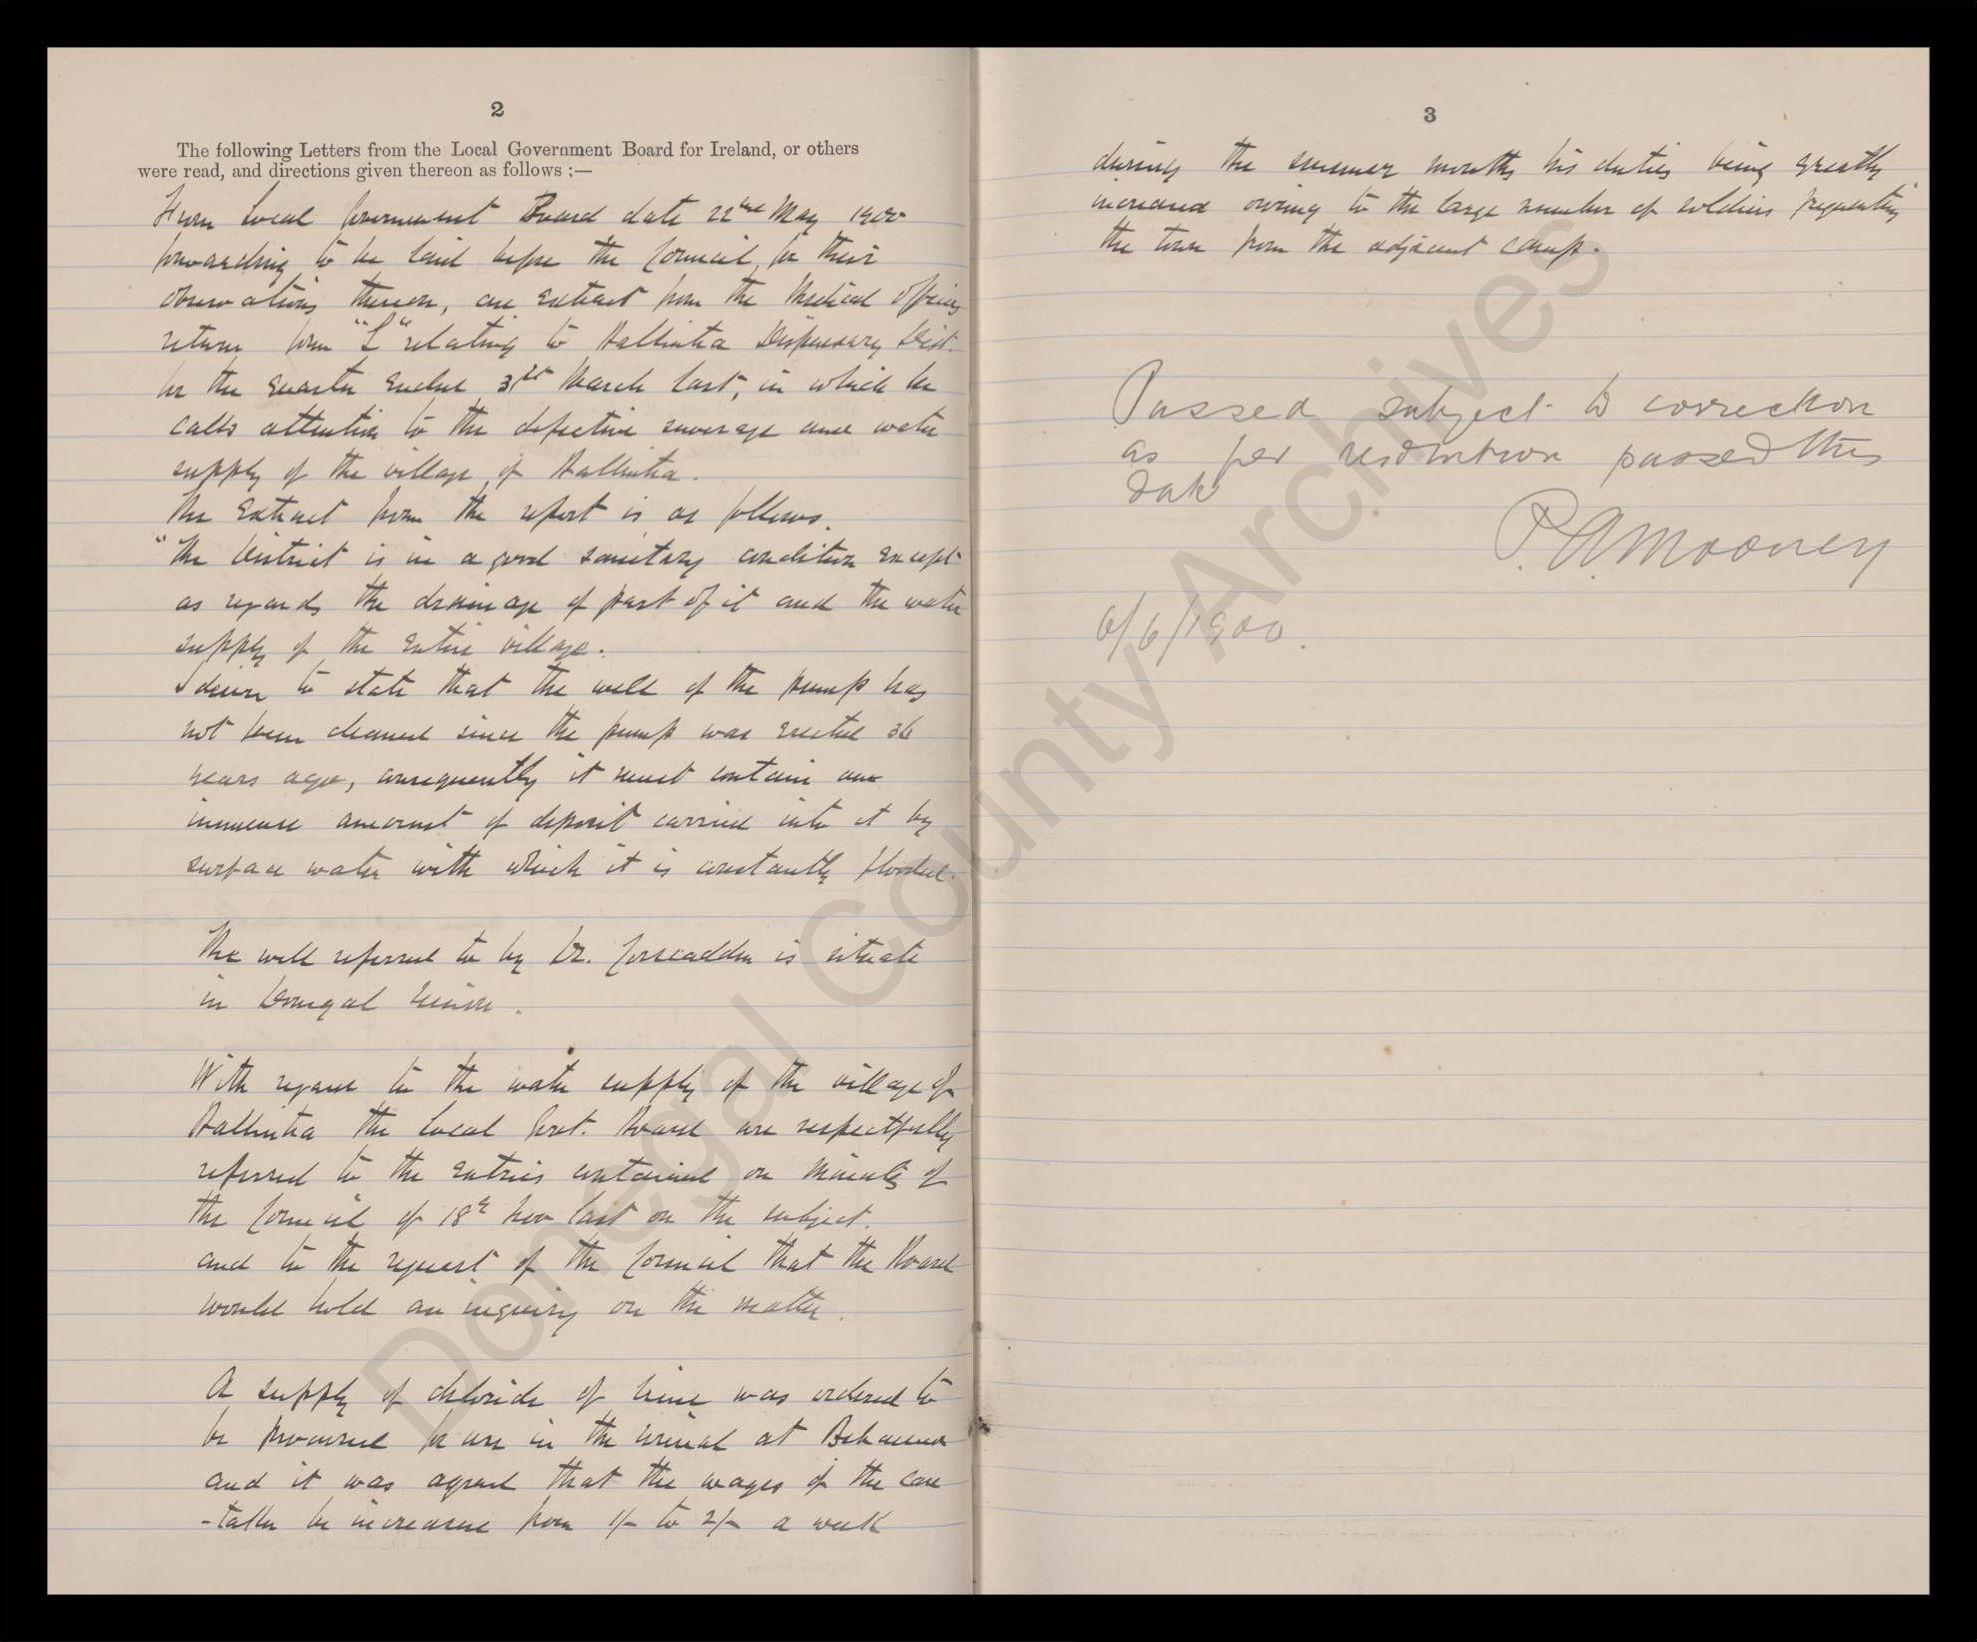 2
The following Letters from the Local Government Board for Ireland, or others
were read, and directions given thereon as follows :—
From Local Government Board date 22nd May 1900
forwarding to be laid before the Council for their
observations thereon, an extract from the Medical Officers
return form "L" relating to Ballintra Dispensary Dist.
for the quarter ended 31st March last, in which he
calls attention to the defective sewerage and water
supply of the village of Ballintra.
The Extract from the report is as follows.
"The District is in a good sanitary condition except
as regards the drainage of part of it and the water
supply of the entire village.
I desire to state that the well of the pump has
not been cleaned since the pump was erected 36
years ago, consequently it must contain an
immense amount of deposit carried into it by
surface water with which it is constantly flooded.
The well referred to by Dr. Condon is situate
in Donegal Union.
With regard to the water supply of the village of
Ballintra the Local Govt. Board are respectfully
referred to the entries contained on minutes of
the Council of 18th Nov last on the subject.
and to the request of the Council that the Board
would hold an inquiry on the matter.
A supply of chloride of lime was ordered to
be procured for use in the urinal at
and it was agreed that the wages of the care
-taker be increased from 1/- to 2/- a week
3
during the summer months his duties being greatly
increased owing to the large number of soldiers frequenting
the town from the adjacent camp.
Passed subject to correction
as per resolution passed this
date
P. A. Mooney
6/6/1900.
Donegal County Archives